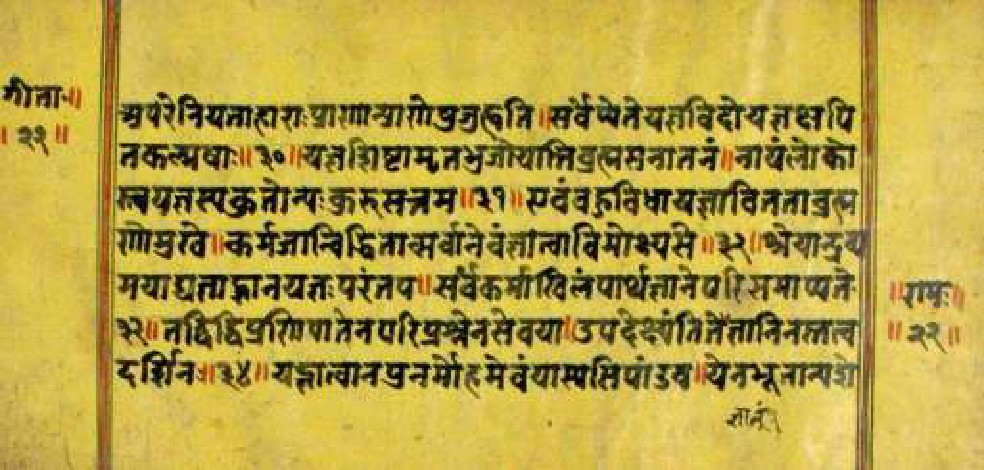 गीताः॥
॥२२॥
अपरेनियताहाराःप्राणान्प्राणेषुजुह्वति॥सर्वेप्येतेयज्ञविदोयज्ञक्षपि
तकल्मषाः॥३०॥यज्ञशिष्टामृतभुजोयांतिब्रह्मसनातनं॥नायंलोको
स्त्ययज्ञस्यकुतोन्यःकुरुसत्तम॥३१॥एवंबहुविधायज्ञावितताब्रह्म
णोमुखे॥कर्मजान्विद्धितान्सर्वानेवंज्ञात्वाविमोक्ष्यसे॥३२॥श्रेयान्द्रव्य
मयाद्यज्ञाज्ज्ञानयज्ञःपरंतप॥सर्वंकर्माखिलंपार्थज्ञानेपरिसमाप्यते
३३॥तद्विद्धिप्रणिपातेनपरिप्रश्नेनसेवया॥उपदेक्ष्यंतितेज्ञानंज्ञानिनस्तत्त्व
दर्शिनः॥३४॥यज्ज्ञात्वानपुनर्मोहमेवंयास्यसिपांडव॥येनभूतान्यशे
॥रामः॥
॥२२॥